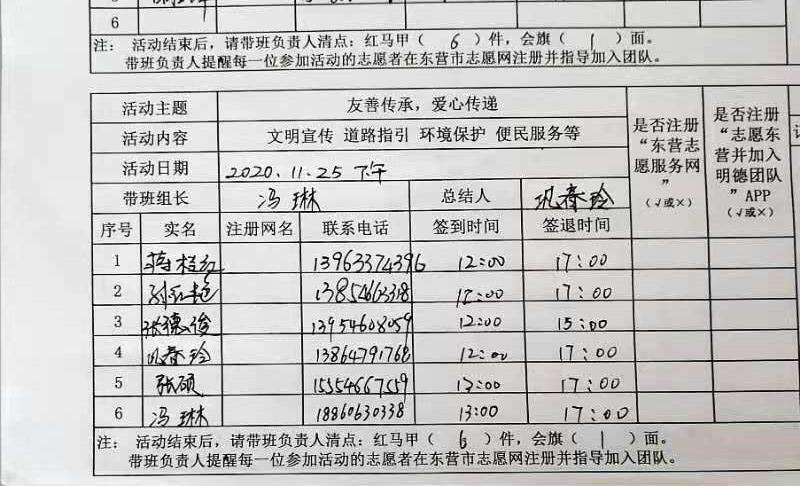 6
注: 活动结束后，请带班负责人清点: 红马甲（ 6 ）件，会旗（ 1 ）面。
带班负责人提醒每一位参加活动的志愿者在东营市志愿网注册并指导加入团队。
活动主题 友善传承，爱心传递 是否注册“东营志愿服务网” （√或×） 是否注册“志愿东营并加入明德团队” APP （√或×）
活动内容 文明宣传 道路指引 环境保护 便民服务等
活动日期 2020.11.25 下午
带班组长 冯琳 总结人 巩春玲
序号 实名 注册网名 联系电话 签到时间 签退时间
1 蒋桂红 13963374396 12:00 17:00
2 13854663318 12:00 17:00
3 张德俊 13954608059 12:00 15:00
4 巩春玲 13864791768 12:00 17:00
5 张硕 15554667559 13:00 17:00
6 冯琳 18860630338 13:00 17:00
注: 活动结束后，请带班负责人清点: 红马甲（ 6 ）件，会旗（ 1 ）面。
带班负责人提醒每一位参加活动的志愿者在东营市志愿网注册并指导加入团队。